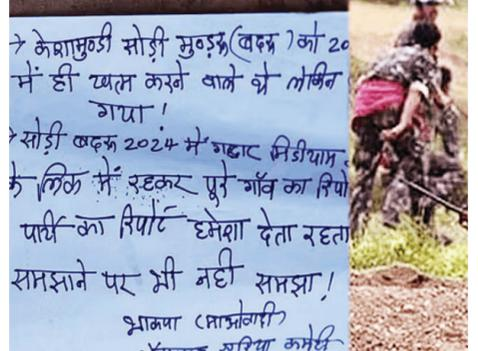 → केशामुण्डी सोड़ी मुन्ड्रा (बदरू) को 20
में ही खत्म करने वाले थे लेकिन
गया !
→ सोड़ी बदरू 2024 में गद्दार मिडीयाम
के लिंक में रहकर पूरे गाँव का रिपो
पार्टी का रिपोर्ट हमेशा देता रहता
समझाने पर भी नही समझा !
भाकपा (माओवादी)
एरिया कमेटी